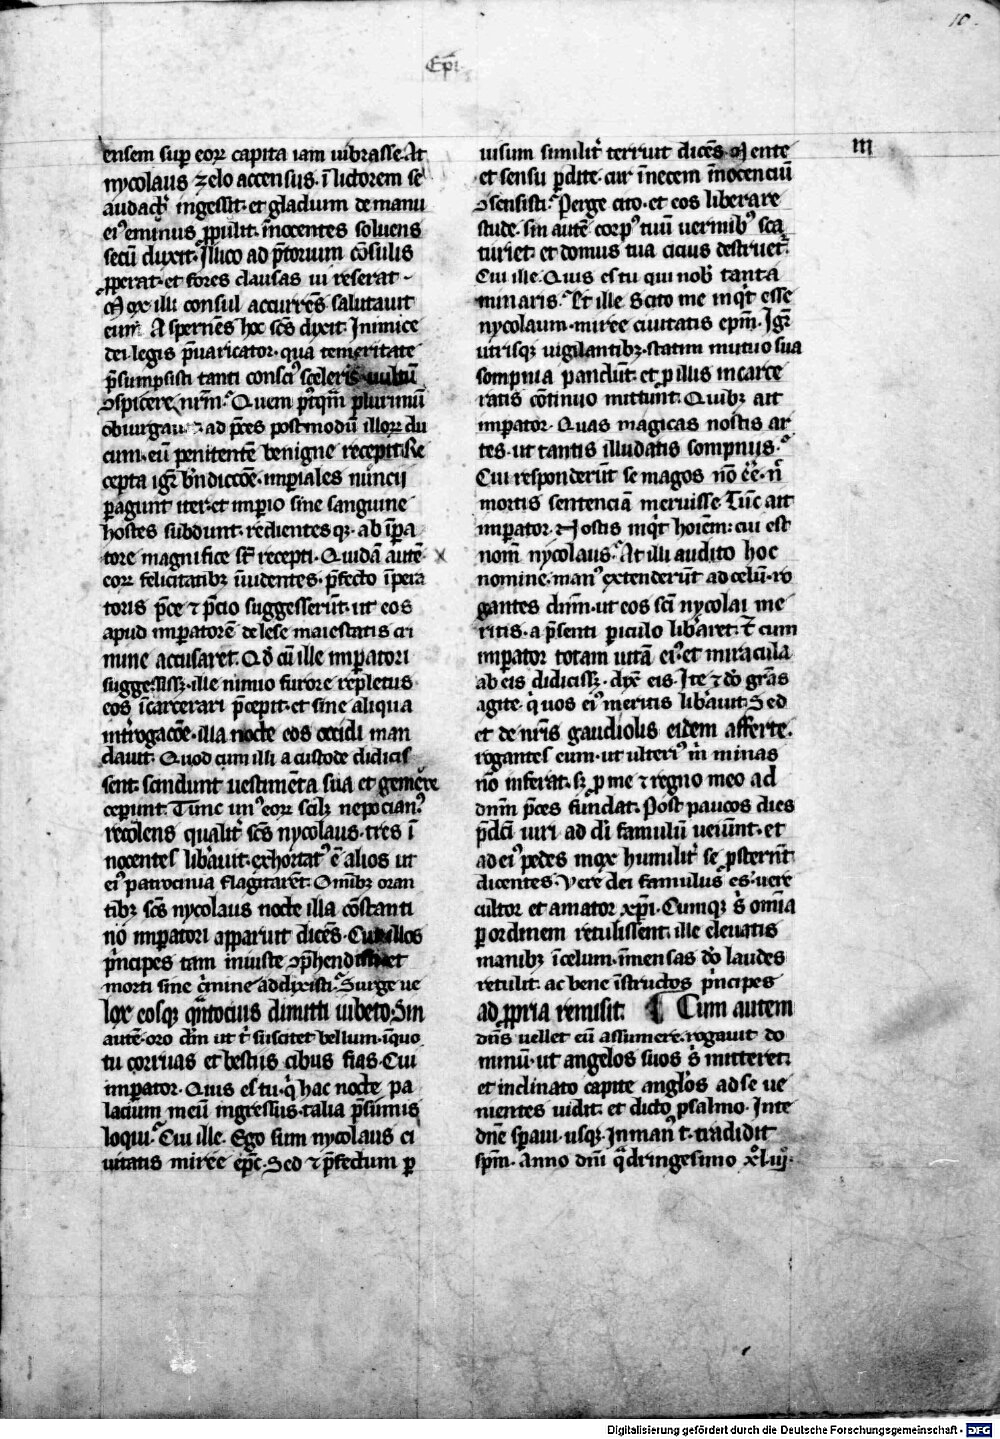 10.
Ep̄i.
ensem sup̱ eoꝝ capita iam uibrasse. At
nycolaus zelo accensus. ī lictorem se
audacꝭ ingessit. et gladium de manu
eiꝰ eminus ꝓpulit. īnocentes soluens
secū duxit. Illico ad p̄torium cōsulis
ꝓperat. et fores clausas ui reserat.
Mox illi consul accurrēs salutauit
eum. Aspernēs hoc sc̄s dixit. Inimice
dei legis p̄uaricator. qua temeritate
p̄sumpsisti tanti consciꝰ sceleris uultū
ꝯspicere nr̄m. Quem p̄tꝙ̄ plurimū
obiurgau ad p̄ces postmodū illoꝝ du
cum. eū penitentē benigne recepit. Re
cepta igr̄ bn̄diccōe. imp̱iales nūncij
ꝑagunt iter. et imp̱io sine sanguine
hostes subdunt. redientesqꝫ. ab īp̱a
tore magnifice st̄ recepti. Quidā autē
eoꝝ felicitatibꝫ īuidentes. p̄fecto īpera
toris p̄ce ⁊ p̄cio suggesserūt. ut eos
apud imp̱atorē de lese maiestatis cri
mine accusaret. Qd̓ cū ille imp̱atori
suggessissꝫ. ille nimio furore repletus
eos īcarcerari p̄cepit. et sine aliqua
int̓rogacōe. illa nocte eos occidi man
dauit. Quod cum illi a custode didicis
sent. scindunt uestimēta sua et gemēre
ceperunt. Tunc unꝰ eoꝝ scilꝫ nepocianꝰ
recolens qualit̓ sc̄s nycolaus. tres ī
nocentes lib̓auit. exhortatꝰ ē alios ut
eiꝰ patrocinia flagitarēt. Om̄ibꝫ oran
tibꝫ sc̄s nycolaus nocte illa cōstanti
no imp̱atori apparuit dicēs. Cur illos
pͥncipes tam iniuste ꝯp̄hendisti. et
morti sine cͥmine addixisti. Surge ue
lox eosqꝫ qͣntocius dimitti iubeto. Sin
autē. oro dm̄ ut tͥ suscitet bellum. īquo
tu corruas et bestiis cibus fias. Cui
imp̱ator. Quis es tu. qͥ hac nocte pa
lacium meū ingressus. talia p̄sumis
loqui. Cui ille. Ego sum nycolaus ci
uitatis miree ep̄c. Sed ⁊ p̄fectum ꝑ
III
uisum similit̓ terruit dicēs. Mente
et sensu ꝑdite. cur īnecem īnocenciū
ꝯsensisti. Perge cito. et eos liberare
stude. sin autē corpꝰ tuū uermibꝰ sca
turiet. et domus tua cicius destruet̓.
Cui ille. Quis es tu qui nob̓ tanta
minaris. Et ille Scito me inqͥt esse
nycolaum. miree ciuitatis ep̄m. Igr̄
utrisqꝫ uigilantibꝫ. statim mutuo sua
sompnia pandūt. et ꝑ illis incarce
ratis cōtinuo mittūt. Quibꝫ ait
imp̱ator. Quas magicas nostis ar
tes. ut tantis illudatis sompniis.
Cui responderūt se magos nō ēē. nͨ
mortis sentenciā meruisse. Tūc ait
imp̱ator. Nostis inqͥt hoīem: cui est
nom̄ nycolaus. At illi audito hoc
nomine. manꝰ extenderūt ad celū. ro
gantes dnm̄. ut eos sc̄i nycolai me
ritis. a p̄senti ꝑiculo lib̓aret. Et cum
imp̱ator totam uitā eiꝰ. et miracula
ab eis didicissꝫ. dix̄ eis. Ite ⁊ dō gr̄as
agite. qͥ uos eiꝰ meritis lib̓auit. Sed
et de nr̄is gaudiolis eidem afferte.
rogantes eum. ut ulteriꝰ m̄ minas
nō inferat. sꝫ ꝓ me ⁊ regno meo ad
dnm̄ p̄ces fundat. Post paucos dies
p̄dc̄i uiri. ad di̓ famulū ueiūnt. et
ad eiꝰ pedes mox humilit̓ se ꝓsternūt
dicentes. Vere dei famulus es. uere
cultor et amator xp̄i. Cumqꝫ s̓ om̄ia
ꝑ ordinem retulissent. ille eleuatis
manibꝫ īcelum. īmensas dō laudes
retulit. ac bene īstructos pͥncipes
ad ꝓpria remisit. ¶ Cum autem
dn̄s uellet eū assumere. rogauit do
minū. ut angelos suos s̓ mitteret.
et inclinato capite angl̓os ad se ue
nientes uidit. et dicto psalmo. In te
dn̄e sp̱aui. usqꝫ. In manꝰ t. tradidit
sp̄m. Anno dn̄i qͣdringesimo xͦl.iijͦ.
Digitalisierung gefördert durch die Deutsche Forschungsgemeinschaft - DFG